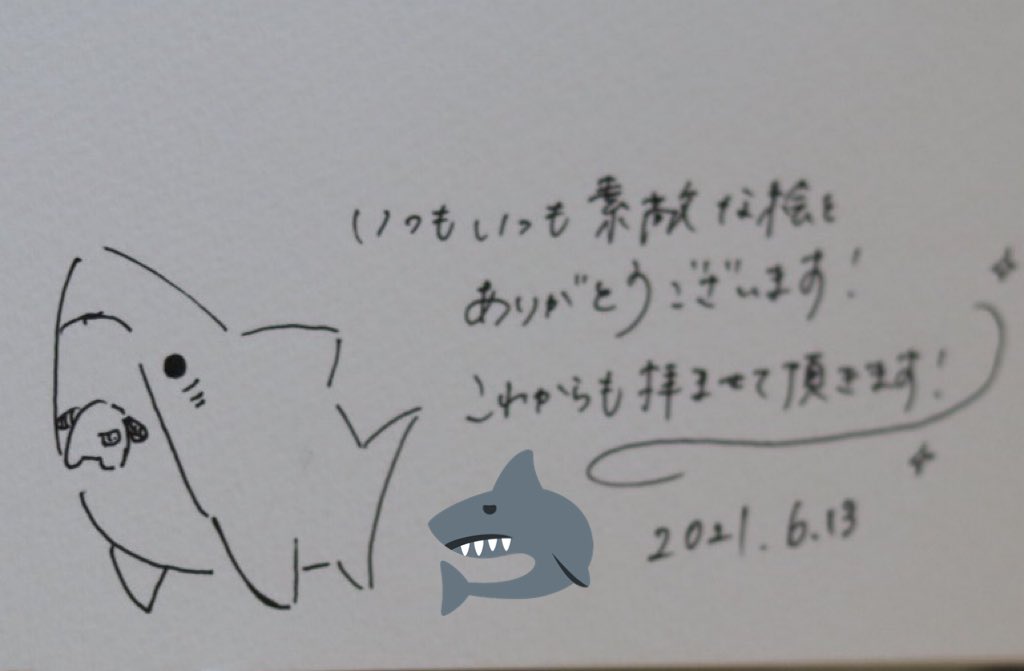 いつもいつも素敵な絵を
ありがとうございます!
これからも拝ませて頂きます!
2021.6.13